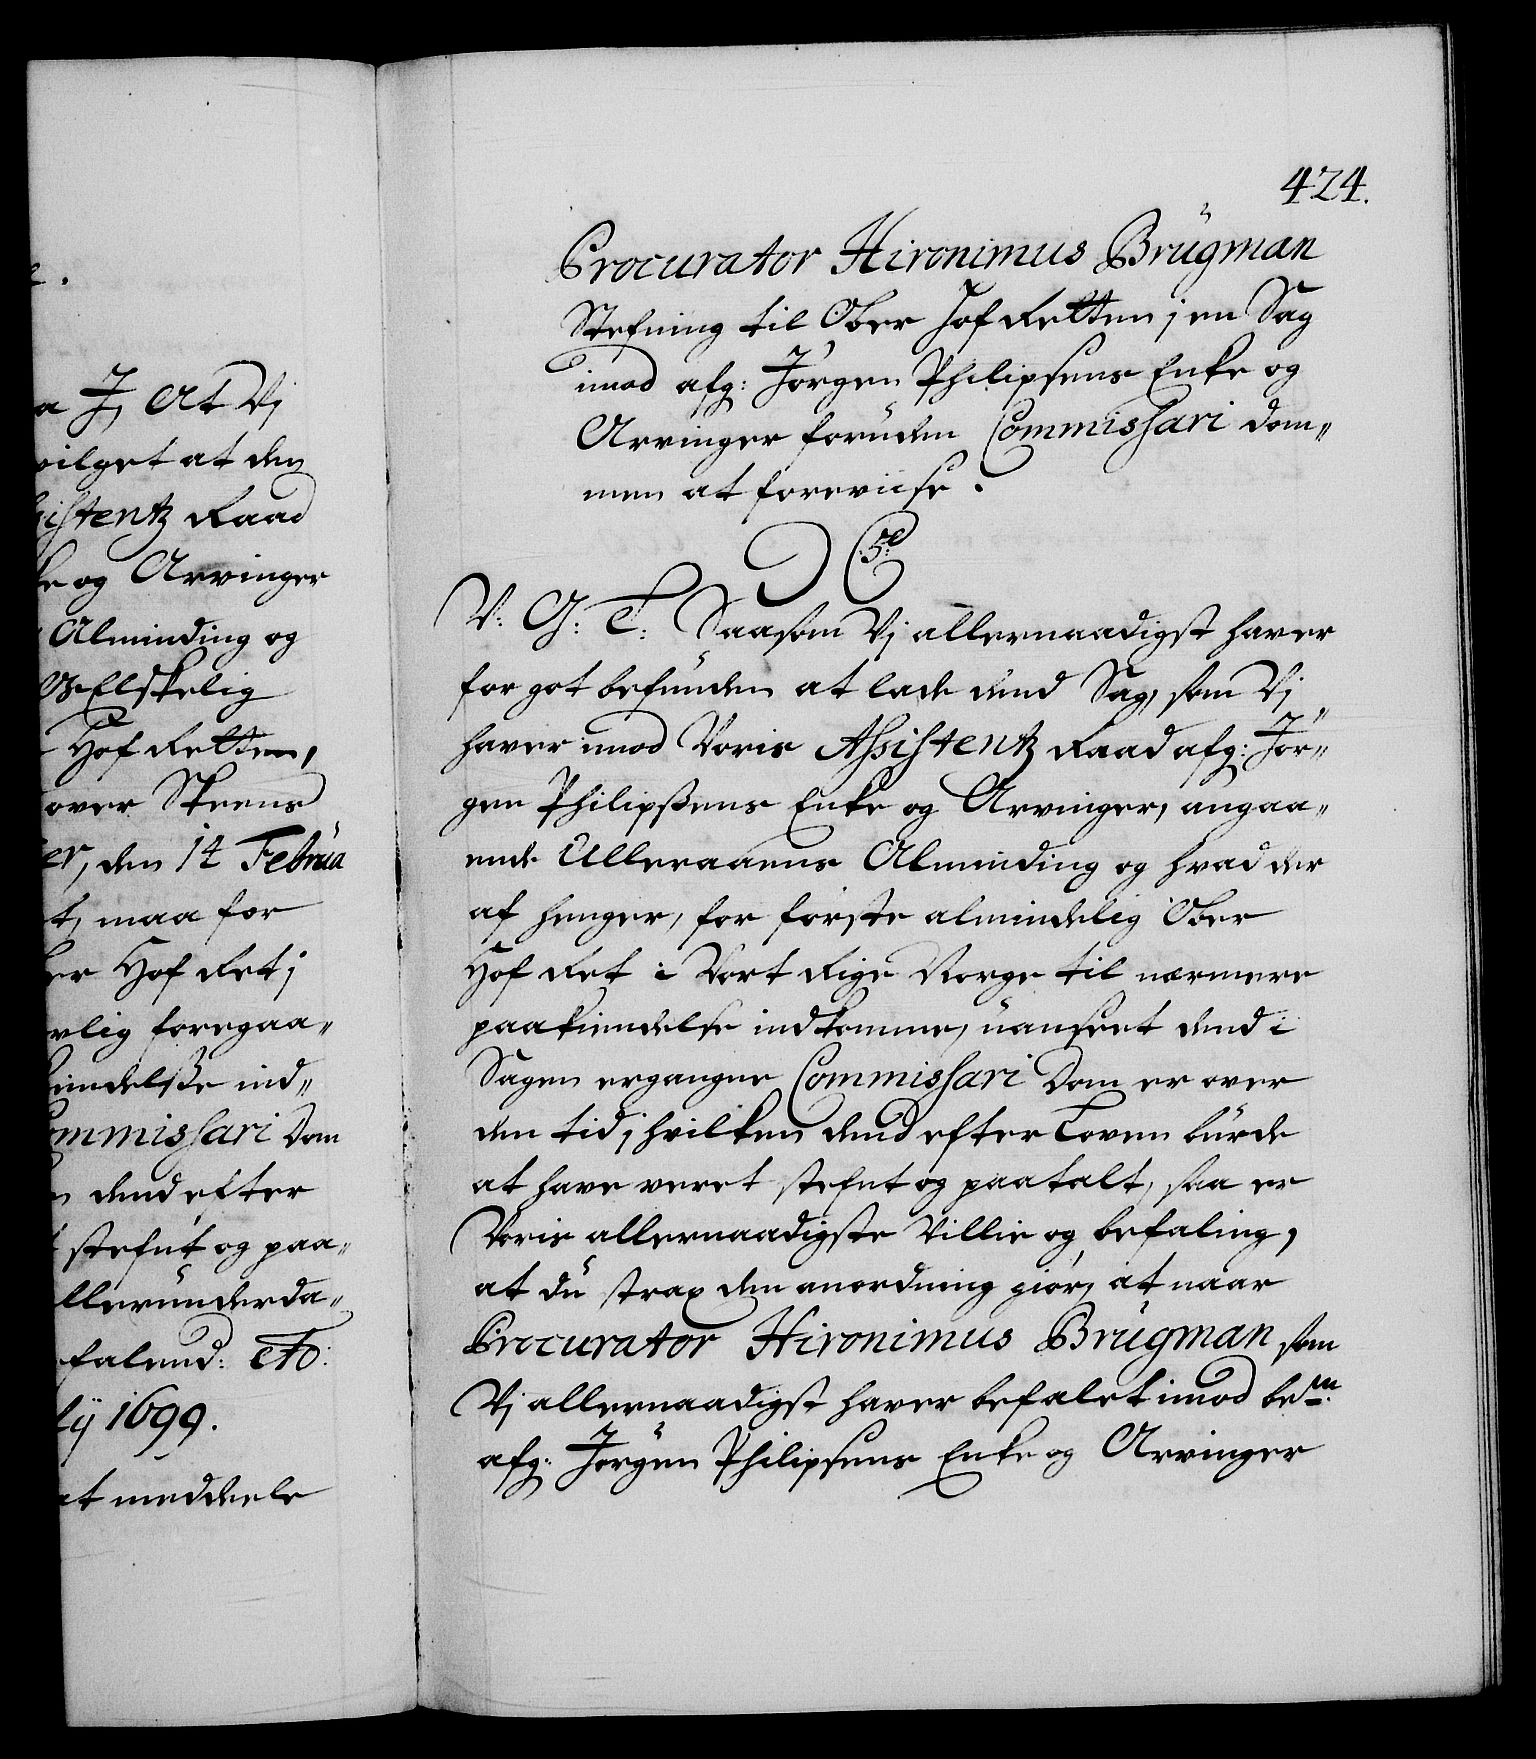 e.
a J, At Vj
vilget at den
sistentz Raad
ke og Arvinger
Alminding og
Os Elskelig
Hof Retten,
over Skeens
er, den 14 Februa
t, maa for
er Hof Ret j
vlig foregaa„
kiendelsse ind„
ommissari Dom
n dend efter
stefnt og paa„
llerunderda„
falend: etc:
lij 1699.
at meddeele
424.
Procurator Hironimus Brugman
Stefning til Ober Hof Retten j en Sag
imod afg: Jørgen Philipsens Enke og
Arvinger foruden Commissari dom„
men at foreviise.
V: G: T: Saasom Vj allernaadigst haver
for got befunden at lade dend Sag, som Vj
haver imod Voris Assistentz Raad afg: Jør„
gen Philipssens Enke og Arvinger, angaa„
ende Ulleraaens Alminding og hvad der
af henger, for første almindelig Ober
Hof Ret i Vort Rige Norge til nærmere
paakiendelse indkomme, uanseet dend i
Sagen ergangne Commissari Dom er over
den tid, hvilken dend efter Loven burde
at have veret stefnt og paatalt, saa er
Voris allernaadigste Villie og befaling,
at du strax den anordning giør, at naar
Procurator Hironimus Brugman som
Vj allernaadigst haver befalet imod bem:
afg: Jørgen Philipsens Enke og Arvinger